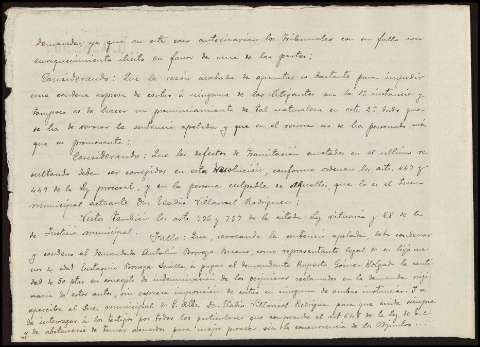 demandas, ya que en este caso autorizarían los Tribunales con su fallo un
enriquecimiento ilícito en favor de una de las partes;
Considerando: Que la razón acabada de apuntar es bastante para impedir
una condena expresa de costas a ninguno de los litigantes en la 1ª instancia y
tampoco es de hacer un pronunciamiento de tal naturaleza en esta 2ª dado que
se ha de revocar la sentencia apelada y que en el recurso no se ha personado más
que su promovente;
Considerando: Que los defectos de tramitación anotados en el último re-
sultando deben ser corregidos en esta resolución, conforme ordenan los arts. 447 y
449 de la ley procesal, y en la persona culpable de aquellos, que lo es el Juez
municipal actuante Dn. Eladio Villamel Rodríguez;
Visto también los arts. 736 y 737 de la citada Ley rituaria y 28 de la
de Justicia municipal. Fallo: Que, revocando la sentencia apelada debo condenar
y condeno al demandado Antolín Borrega, como representante legal de su hija me-
nor de edad Eutiquia Borrega Sevilla a pagar al demandante Ruperto Gómez Holgado la canti-
dad de 50 ptas en concepto de indemnización de los perjuicios reclamados en la demanda ori-
ginaria de estos autos, sin expresa imposición de costas en ninguna de ambas instancias. Y se
apercibe al Juez municipal de Dn. Eladio Villamel Rodríguez para que cuide siempre
de interrogar a los testigos por todos los particulares que comprende el art. 648 de la ley de E. C.
y de abstenerse de tomar acuerdos para mejor proveer sin la concurrencia de los Adjuntos...